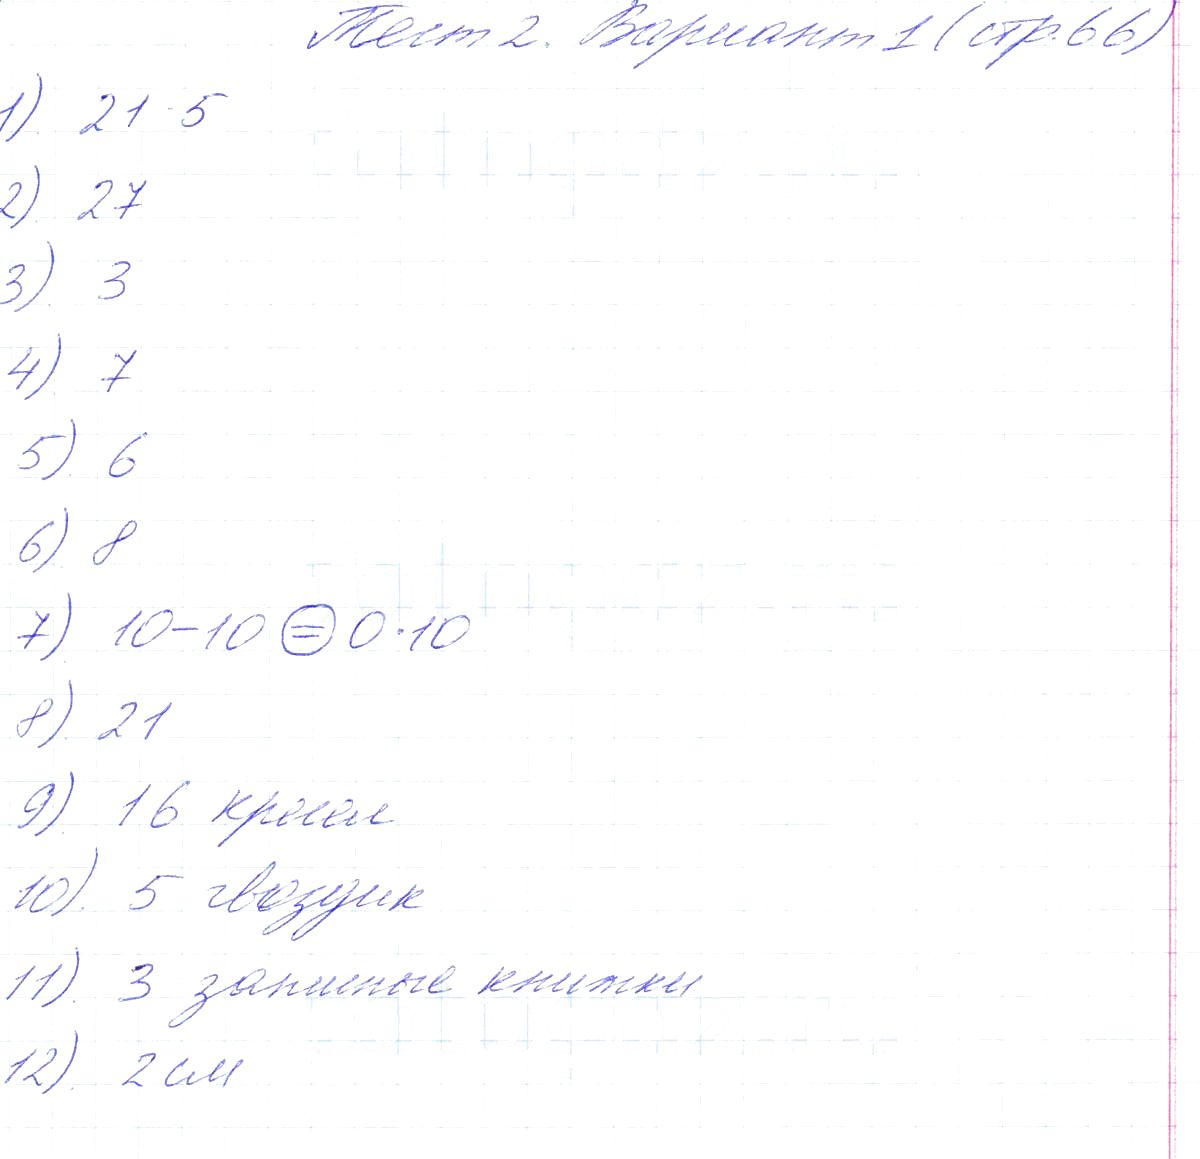 Тест 2. Вариант 1 (стр. 66)
1) 21·5
2) 27
3) 3
4) 7
5) 6
6) 8
7) 10-10 = 0·10
8) 21
9) 16 кресел
10) 5 гвоздик
11) 3 записные книжки
12) 2 см